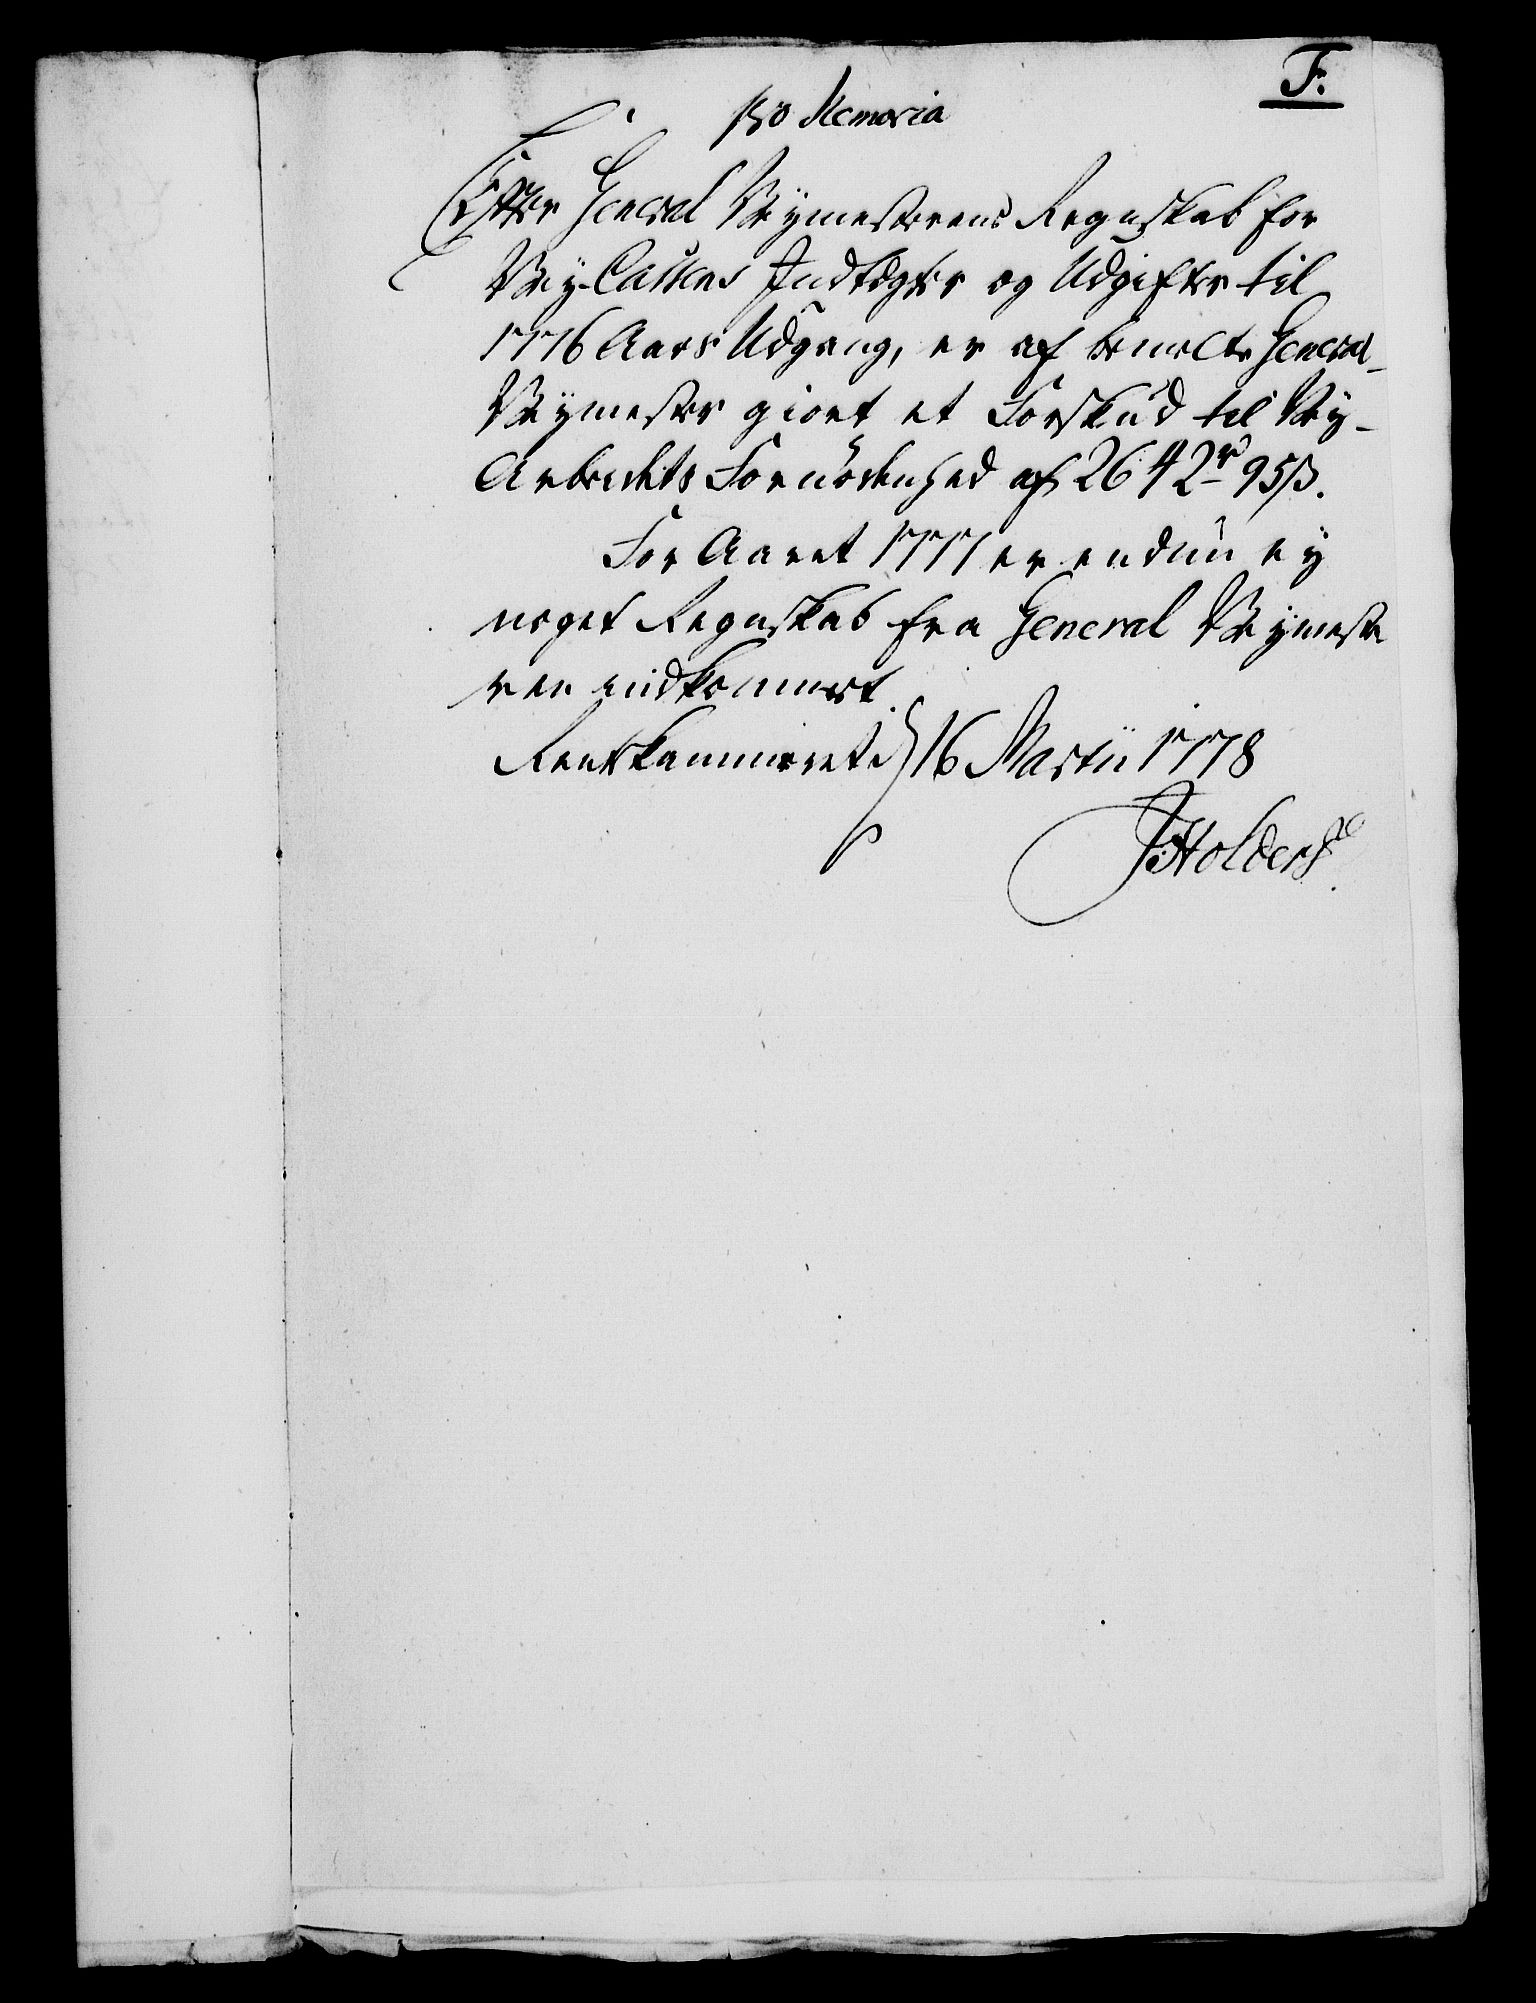 F.
Pro Memoria
Efter General Veymesterens Regnskab for
Vey-Cassens Indtægter og Udgifter til
1776 Aars Udgang, er af bemelte General-
Veymester giort et Forskud til Vey-
Arbeidets Fornødenhed af 2642 rd 95 ß.
For Aaret 1777 er endnu ey
noget Regnskab fra General Veymeste
ren indkommet.
Rentekammeret d 16 Martii 1778